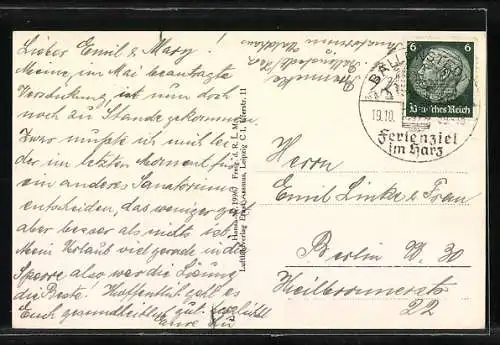 Lieber Emil & Mary
Meine im Mai beantragte
Verschickung ist nun doch
noch zu Stande gekommen.
Zwar mußte ich mich bei
der im letzten Moment für
ein anderes Sanatorium
entscheiden, das weniger gut
aber besser als nichts ist.
Mein Urlaub viel gerade in die
Sperre also war die Lösung
die Beste! Hoffentlich geht es
Euch gesundheitlich gut. Herzlichst
Eure
Luftbildverlag Leipzig C 1, 11
Ballenstedt/Harz
Sanatorium
6 6
Deutsches Reich
BALLENSTEDT
19.10.
Ferienziel
im Harz
Herrn
Emil Linke & Frau
Berlin W. 30
Heilbronnerstr.
22